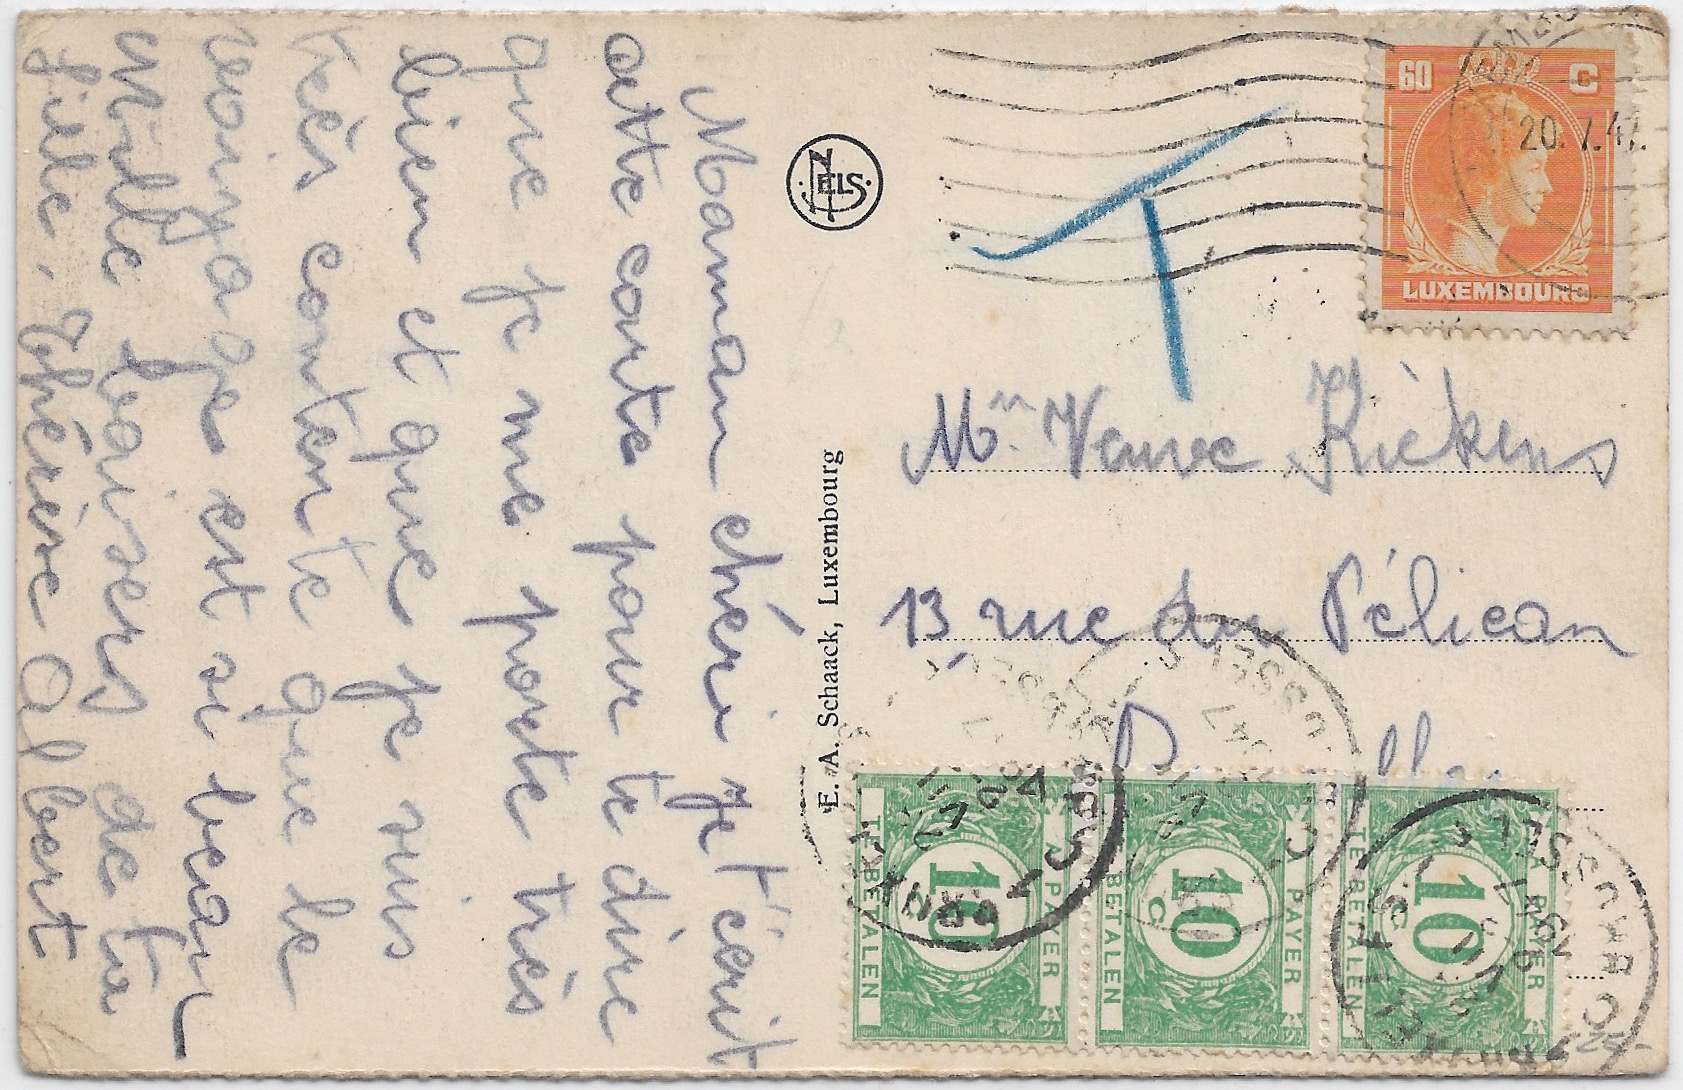 Maman chéri je t'écrit
cette carte pour te dire
que je me porte très
bien et que je suis
très contente que le
voyage est si beau
Mille baisers de ta
fille. Thérèse Albert
E. A. Schaack, Luxembourg
NELS
60 C
LUXEMBOURG
20.7.47.
T
Mme Veuve Kiékens
13 rue du Pélican
A PAYER
10 c
TE BETALEN
A PAYER
10 c
TE BETALEN
A PAYER
10 c
TE BETALEN